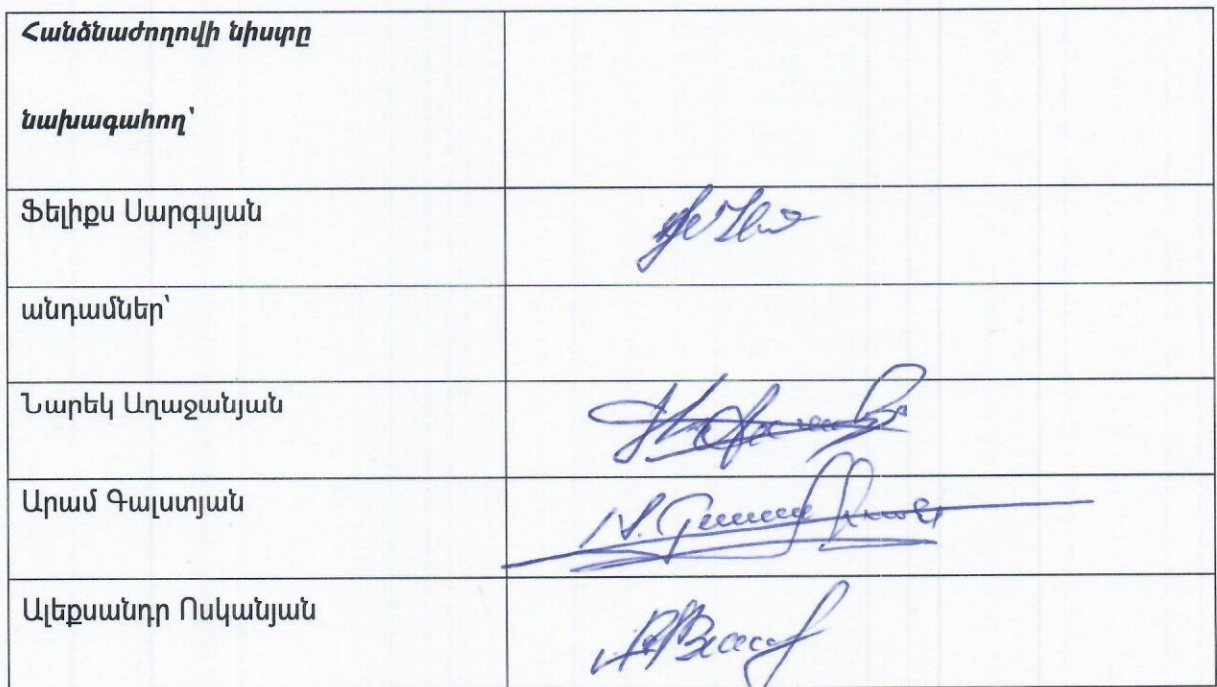 Հանձնաժողովի նիստը
նախագահող՝
Ֆելիքս Սարգսյան
անդամներ՝
Նարեկ Աղաջանյան
Արամ Գալստյան
Ալեքսանդր Ոսկանյան